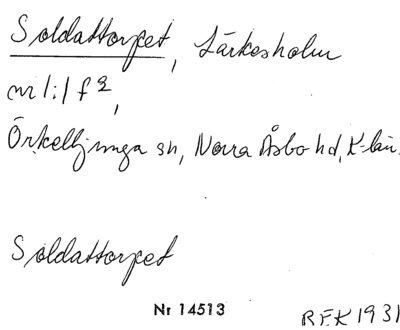 Soldattorpet, Lärkesholm
nr 1:1 f 2,
Örkelljunga sn, Norra Åsbo hd, K-län.
Soldattorpet
Nr 14513
REK 1931